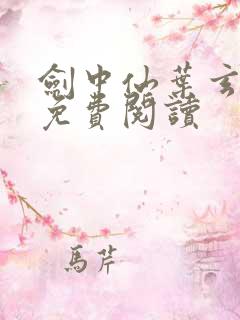 劍中仙葉
免費閱讀
馬芹